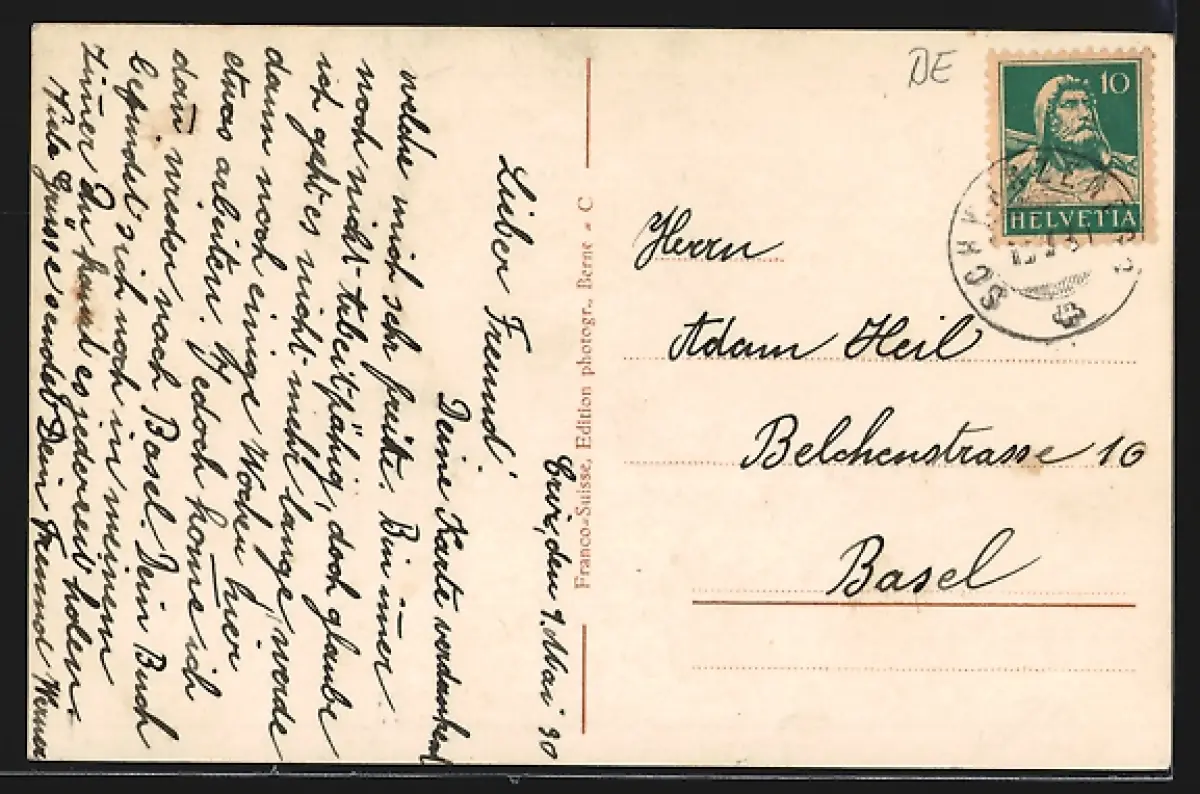 DE
10
HELVETIA
Herrn
Adam Heil
Belchenstrasse 10
Basel
Franco-Suisse, Edition photogr., Berne - C
den 9. Mai 30
Lieber Freund
Deine Karte verdankend
welche mich sehr freute. Bin im̅er
noch nicht arbeitsfähig, doch glaube
ich geht es nicht mehr lange, werde
dann noch einige Wochen hier
etwas arbeiten. Jedoch kom̅e ich
dan̅ wieder nach Basel. Dein Buch
befindet sich noch in meinem
Zim̅er Du kannst es jederzeit holen.
Viele Grüsse sendet Dein Freund Werner